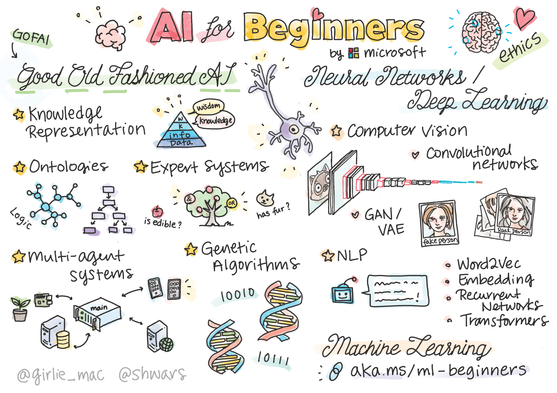 GOFAI
AI for Beginners
by microsoft
ethics
Good Old Fashioned AI
Knowledge
Representation
wisdom
knowledge
W
K
info
Data
Ontologies
Logic
Expert Systems
is edible?
OR
has fur?
Multi-agent
systems
main
Genetic
Algorithms
10010
10111
Neural Networks /
Deep Learning
Computer Vision
Convolutional
networks
GAN/
VAE
fake person
NLP
Word2Vec
Embedding
Recurrent
Networks
Transformers
Machine Learning
aka.ms/ml-beginners
@girlie_mac @shwars